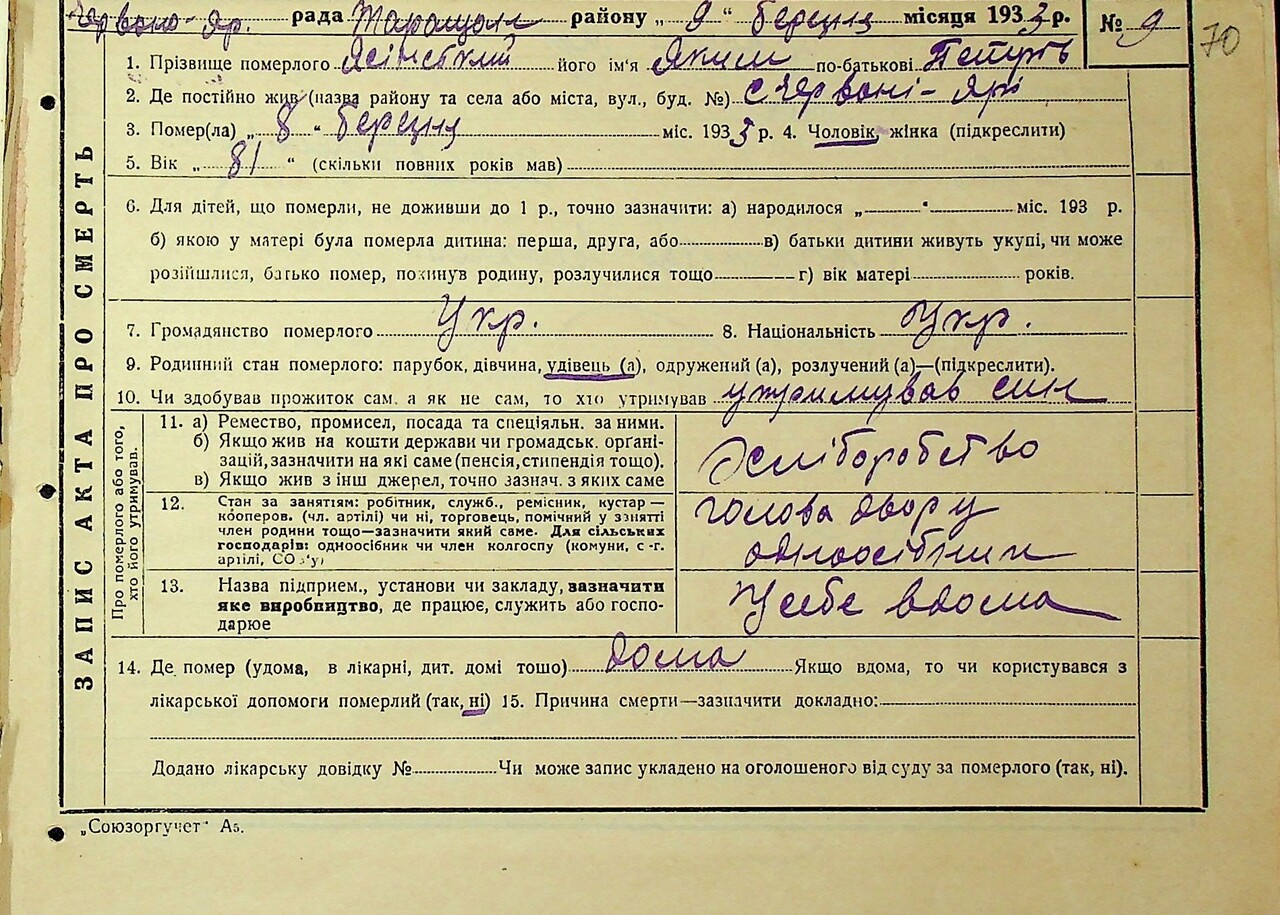 Червоно-яр. рада Таращан району „ 9 “ березня місяця 1933 р. № 9
70
1. Прізвище померлого Ясінський його ім'я Яким по-батькові
2. Де постійно жив (назва району та села або міста, вул., буд. №) с Червоні-Ярі
3. Помер(ла) „ 8 “ березня міс. 1933 р. 4. Чоловік, жінка (підкреслити)
5. Вік „ 81 “ (скільки повних років мав)
6. Для дітей, що померли, не доживши до 1 р., точно зазначити: а) народилося „ “ міс. 193 р.
б) якою у матері була померла дитина: перша, друга, або в) батьки дитини живуть укупі, чи може
розійшлися, батько помер, покинув родину, розлучилися тощо г) вік матері років.
7. Громадянство померлого Укр. 8. Національність Укр.
9. Родинний стан померлого: парубок, дівчина, удівець (а), одружений (а), розлучений (а)—(підкреслити).
10. Чи здобував прожиток сам, а як не сам, то хто утримував утримував син
ЗАПИС АКТА ПРО СМЕРТЬ
Про померлого або того, хто його утримував.
11. а) Ремество, промисел, посада та спеціяльн. за ними.
б) Якщо жив на кошти держави чи громадськ. органі-
зацій, зазначити на які саме (пенсія, стипендія тощо).
в) Якщо жив з інш джерел, точно зазнач. з яких саме
12. Стан за занятям: робітник, служб., ремісник, кустар—
кооперов. (чл. артілі) чи ні, торговець, помічний у занятті
член родини тощо—зазначити який саме. Для сільських
господарів: одноосібник чи член колгоспу (комуни, с.-г.
артілі, СОЗ'у)
голова двору
одноосібник
13. Назва підприєм., установи чи закладу, зазначити
яке виробництво, де працює, служить або госпо-
дарює
У себе вдома
14. Де помер (удома, в лікарні, дит. домі тощо) дома Якщо вдома, то чи користувався з
лікарської допомоги померлий (так, ні) 15. Причина смерти—зазначити докладно:
Додано лікарську довідку № Чи може запис укладено на оголошеного від суду за померлого (так, ні).
„Союзоргучет“ А5.